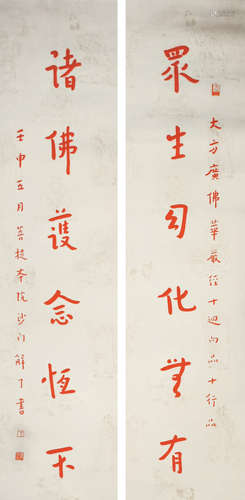 大方廣佛華嚴經十迴向品十行品
眾生勾化無有
諸佛護念恆不
壬申五月菩提李院沙門解了書